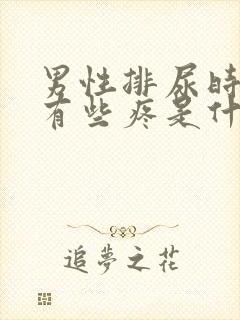 男性排尿时
有些疼是什
追夢之花